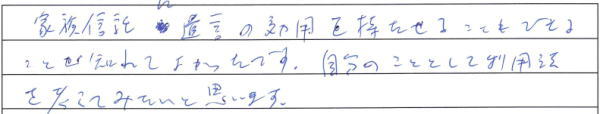 家族信託に遺言の効用を持たせることもできる
ことが知れてよかったです。自分のこととして利用法
を考えてみたいと思います。